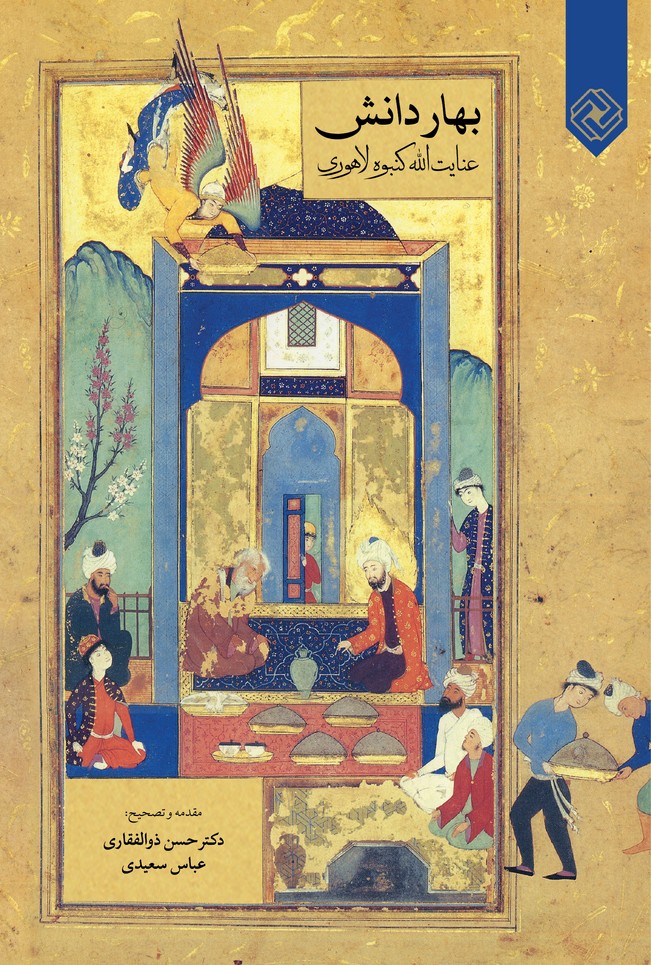 بهار دانش
عنایت‌الله کنبوه لاهوری
مقدمه و تصحیح:
دکتر حسن ذوالفقاری
عباس سعیدی